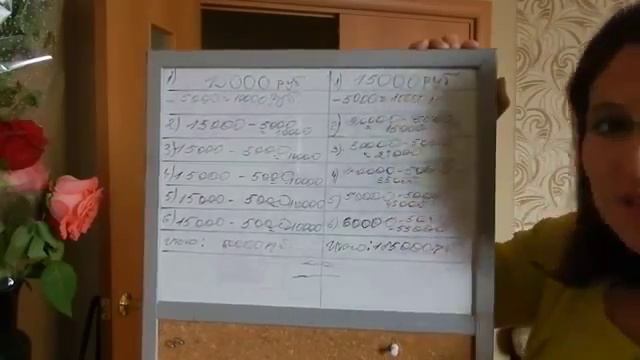 1) 15000 руб
- 5000 = 10000 руб
2) 15000 - 5000
= 10000
3) 15000 - 5000
= 10000
4) 15000 - 5000 = 10000
5) 15000 - 5000 = 10000
6) 15000 - 5000 = 10000
Итого: 60000 руб
1) 15000 руб
- 5000 = 10000
2) 20000 - 5000
= 15000
3) 30000 - 5000
= 25000
4) 40000 - 5000
35000
5) 50000 - 5000
45000
6) 60000 - 5000
= 55000
Итого: 185000 руб